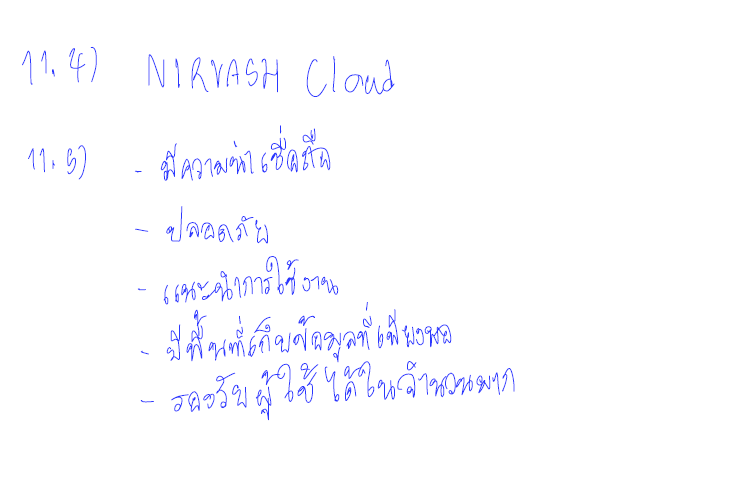 11.4) NIRVASH Cloud
11.5) - มีความน่าเชื่อถือ
- ปลอดภัย
- แนะนำการใช้งาน
- มีพื้นที่เก็บข้อมูลที่เพียงพอ
- รองรับผู้ใช้ได้ในจำนวนมาก